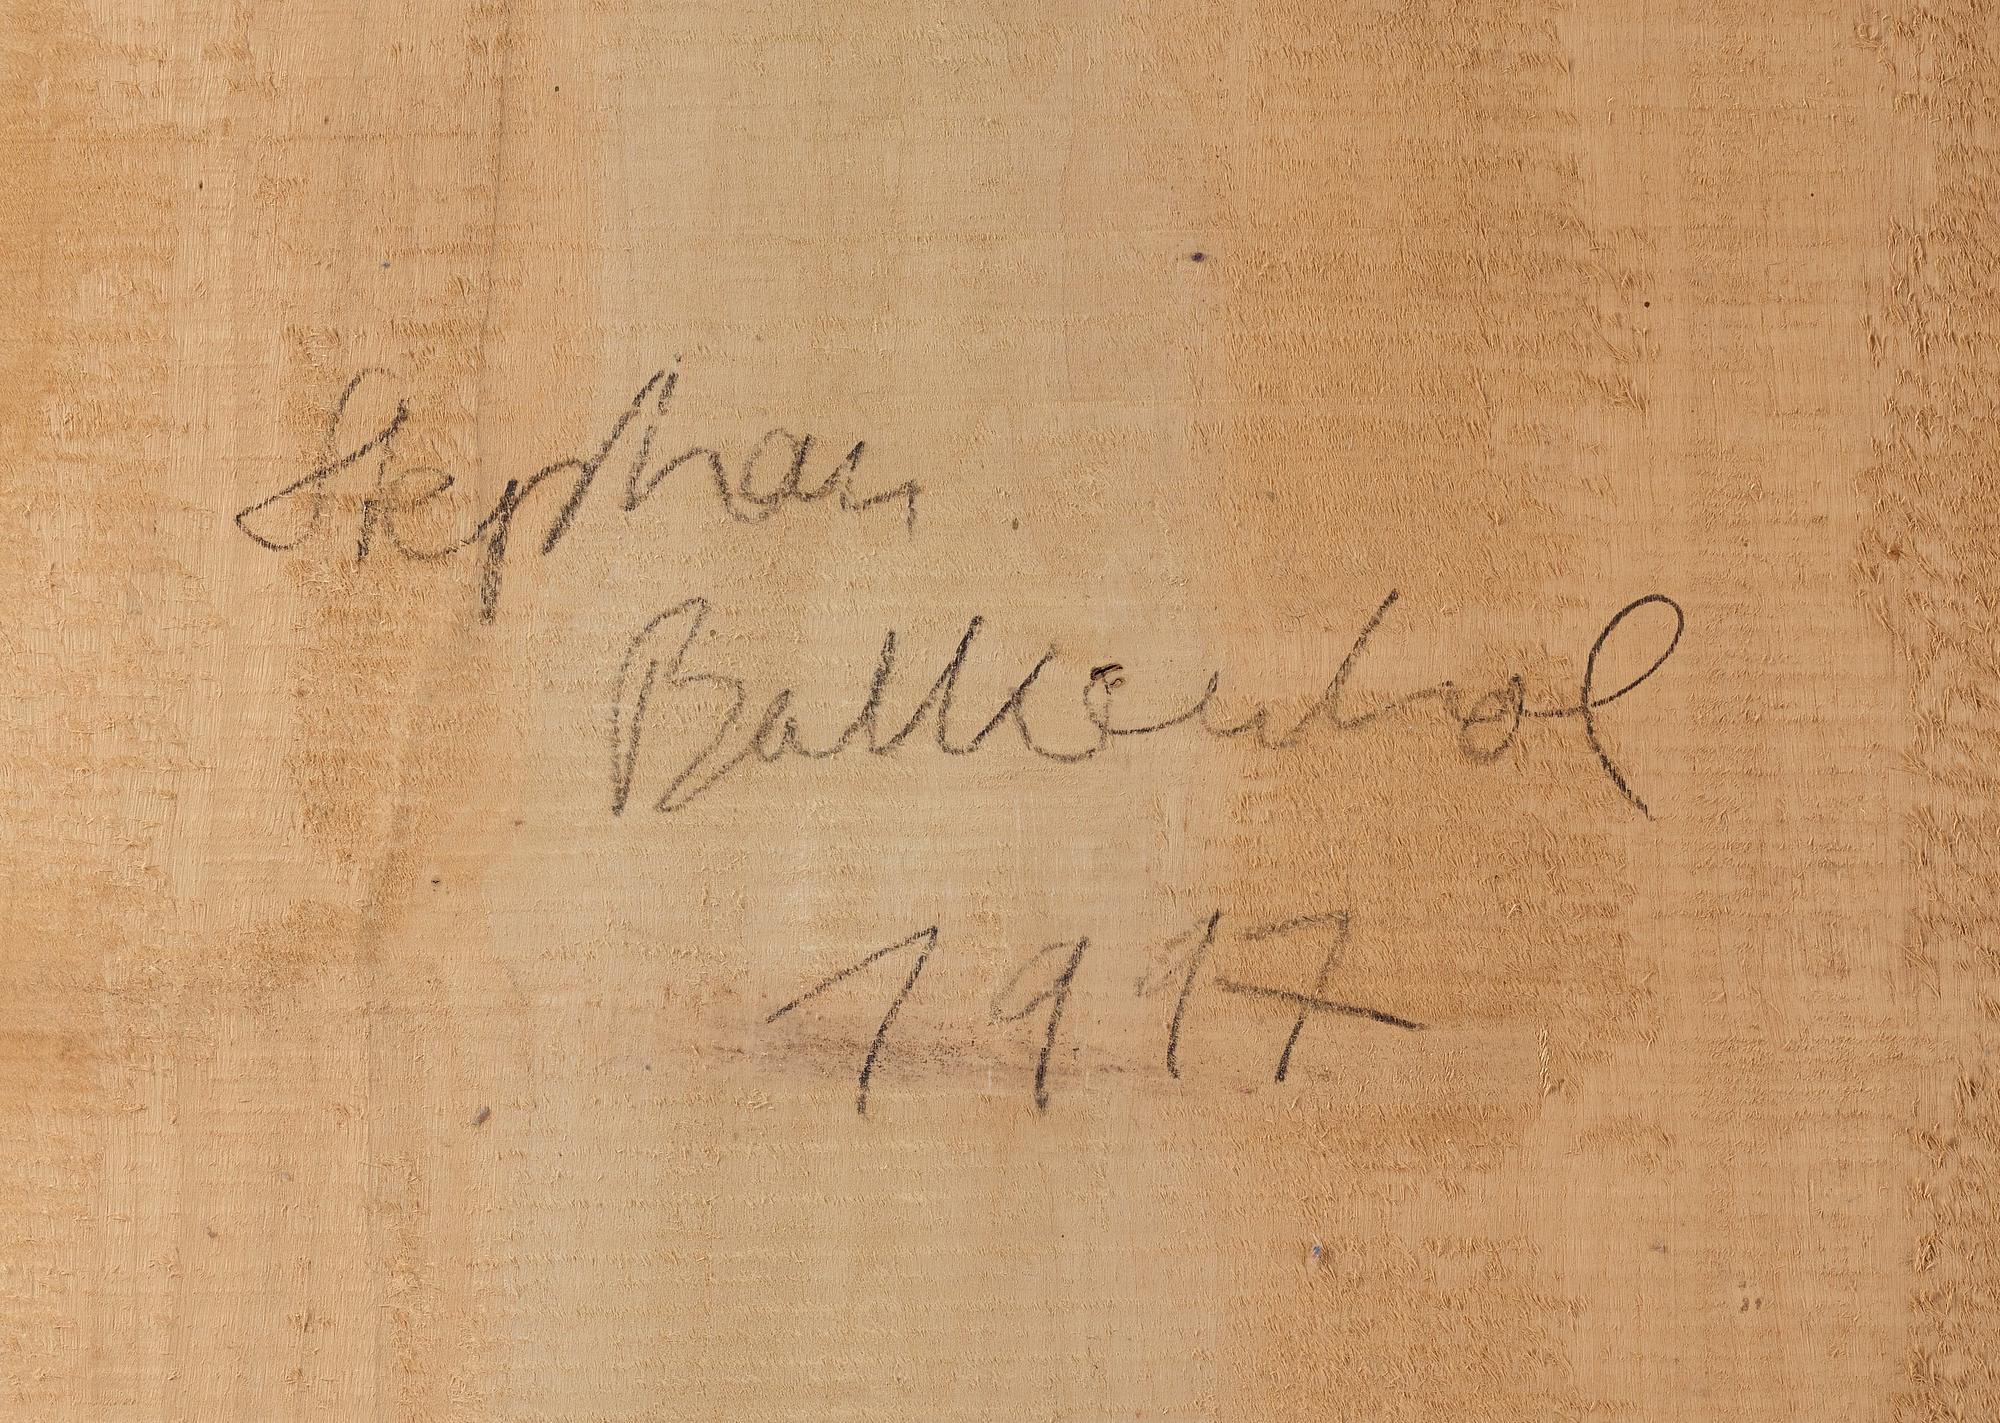 Stephan
Balkenhol
1997